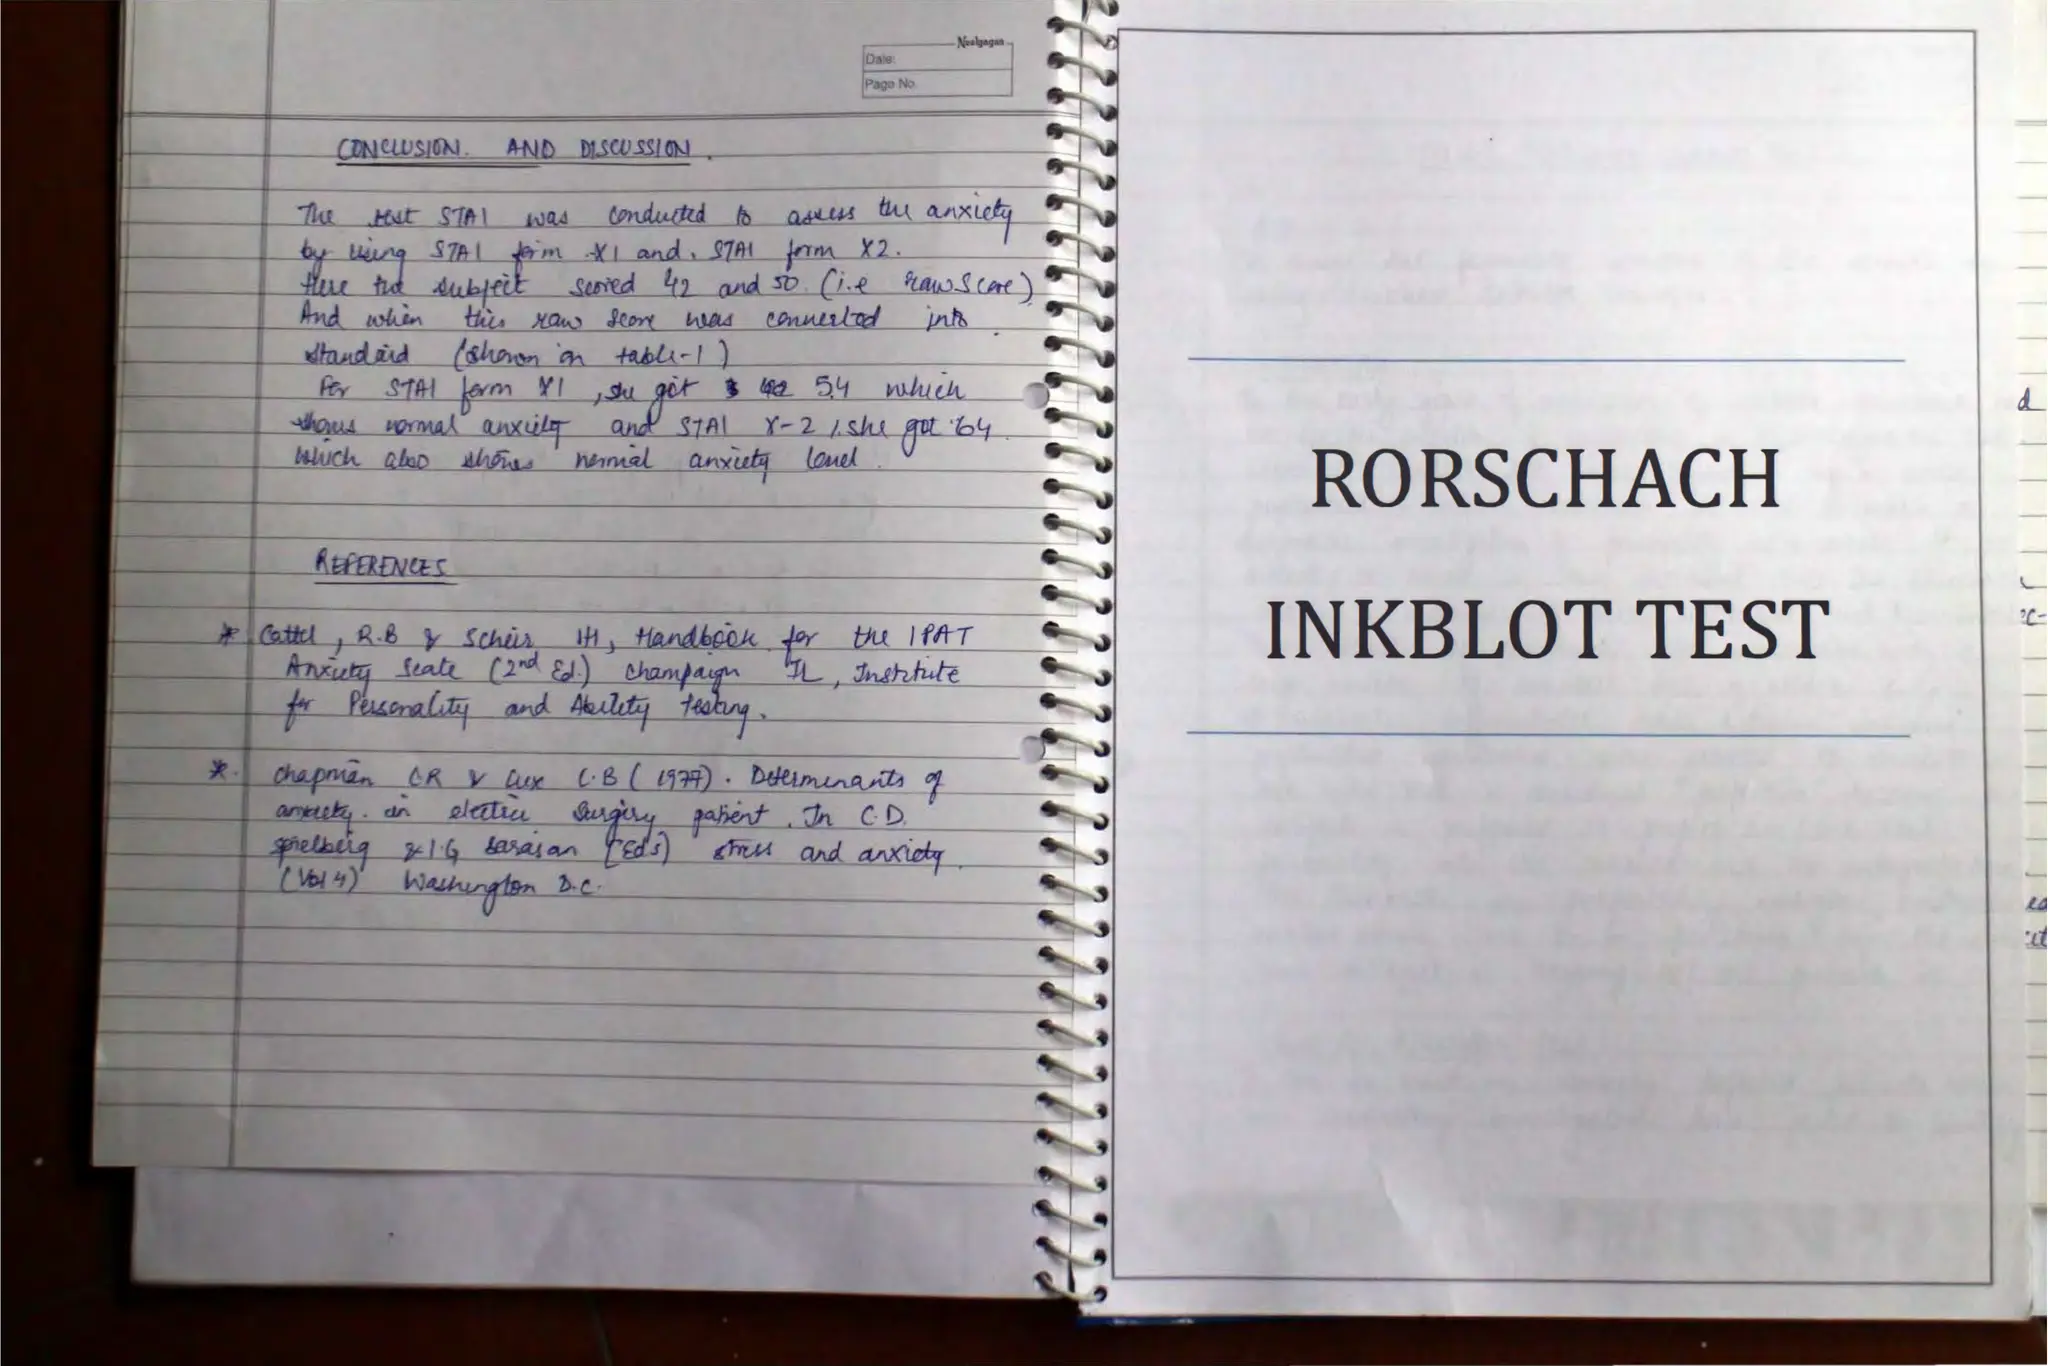 Neelgagan
Date:
Page No.
CONCLUSION. AND DISCUSSION.
The test STAI was conducted to assess the anxiety
by using STAI form X1 and. STAI form X2.
Here the subject scored 42 and 50. (i.e raw Score)
And when this raw score was converted into
standard (shown in table-1)
For STAI form X1, she got 54 which
shows normal anxiety and STAI X-2, she got 64.
Which also shows normal anxiety level.
REFERENCES
* Cattel, R.B & Scheir IH, Handbook for the IPAT
Anxiety Scale (2nd Ed.) Champaign IL, Institute
for Personality and Ability Testing.
* Chapman C.R & Cux C.B (1977). Determinants of
anxiety. in elective Surgery patient. In C.D.
Spielberg & I.G Sarasan (Eds) stress and anxiety.
(Vol 4) Washington D.C.
RORSCHACH
INKBLOT TEST